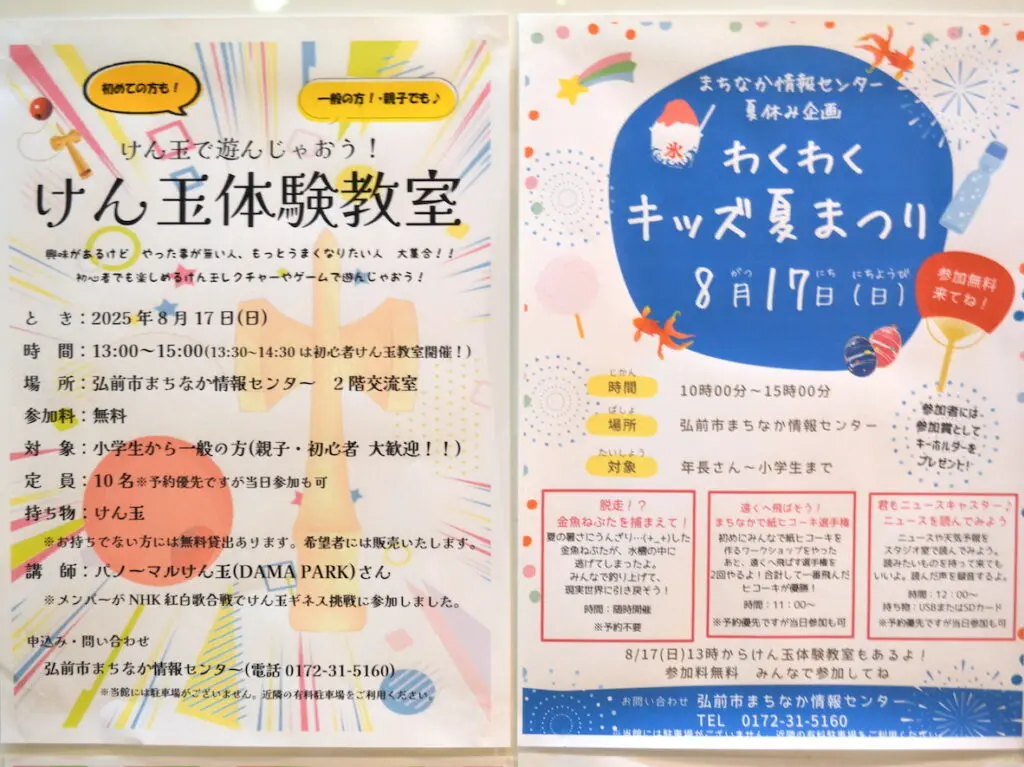 初めての方も！
一般の方！・親子でも♪
けん玉で遊んじゃおう！
けん玉体験教室
興味があるけど　やった事が無い人、もっとうまくなりたい人　大集合！！
初心者でも楽しめるけん玉レクチャーやゲームで遊んじゃおう！
と　き：2025年8月17日(日)
時　間：13:00～15:00(13:30～14:30は初心者けん玉教室開催！)
場　所：弘前市まちなか情報センター　2階交流室
参加料：無料
対　象：小学生から一般の方(親子・初心者 大歓迎！！)
定　員：10名※予約優先ですが当日参加も可
持ち物：けん玉
※お持ちでない方には無料貸出あります。希望者には販売いたします。
講　師：パノ～マルけん玉(DAMA PARK)さん
※メンバーがNHK紅白歌合戦でけん玉ギネス挑戦に参加しました。
申込み・問い合わせ
弘前市まちなか情報センター(電話 0172-31-5160)
※当館には駐車場がございません。近隣の有料駐車場をご利用ください。
まちなか情報センター
夏休み企画
氷
わくわく
キッズ夏まつり
がつ にち にちようび
8月17日(日)
参加無料
来てね！
じかん
時間 10時00分～15時00分
ばしょ
場所 弘前市まちなか情報センター
たいしょう
対象 年長さん～小学生まで
参加者には
参加賞として
キーホルダーを
プレゼント！
脱走！？
金魚ねぷたを捕まえて！
夏の暑さにうんざり…(+_+)した
金魚ねぷたが、水槽の中に
逃げてしまったよ。
みんなで釣り上げて、
現実世界に引き戻そう！
時間：随時開催
※予約不要
遠くへ飛ばそう！
まちなかで紙ヒコーキ選手権
初めにみんなで紙ヒコーキを
作るワークショップをやった
あと、遠くへ飛ばす選手権を
2回やるよ！合計して一番飛んだ
ヒコーキが優勝！
時間：11：00～
※予約優先ですが当日参加も可
君もニュースキャスター♪
ニュースを読んでみよう
ニュースや天気予報を
スタジオ室で読んでみよう。
読みたいものを持って来ても
いいよ。読んだ声を録音するよ。
時間：12：00～
持ち物：USBまたはSDカード
※予約優先ですが当日参加も可
8/17(日)13時からけん玉体験教室もあるよ！
参加料無料　みんなで参加してね
お問い合わせ 弘前市まちなか情報センター
TEL　0172-31-5160
※当館には駐車場がございません。近隣の有料駐車場をご利用ください。